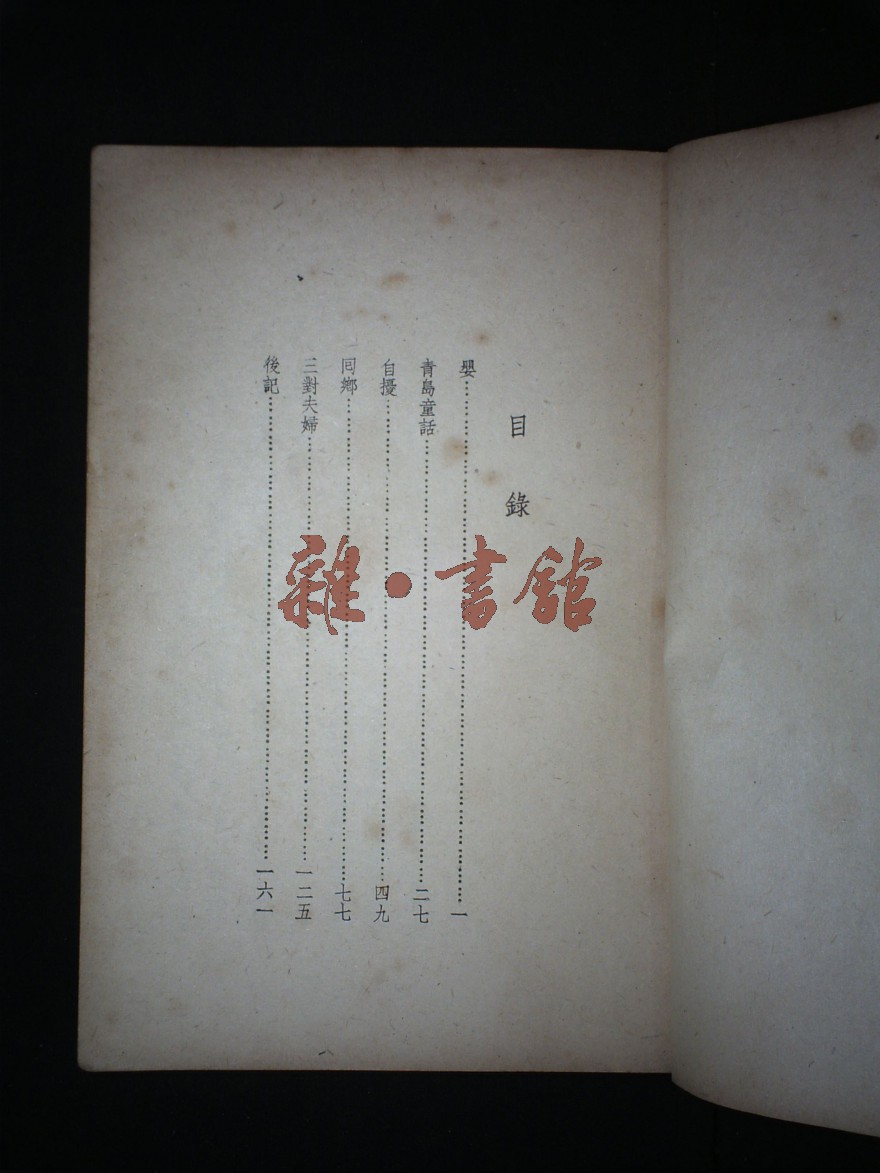 目錄
嬰…………一
青島童話…………二七
自擾…………四九
同鄉…………七七
三對夫婦…………一二五
後記…………一六一
雜·書館